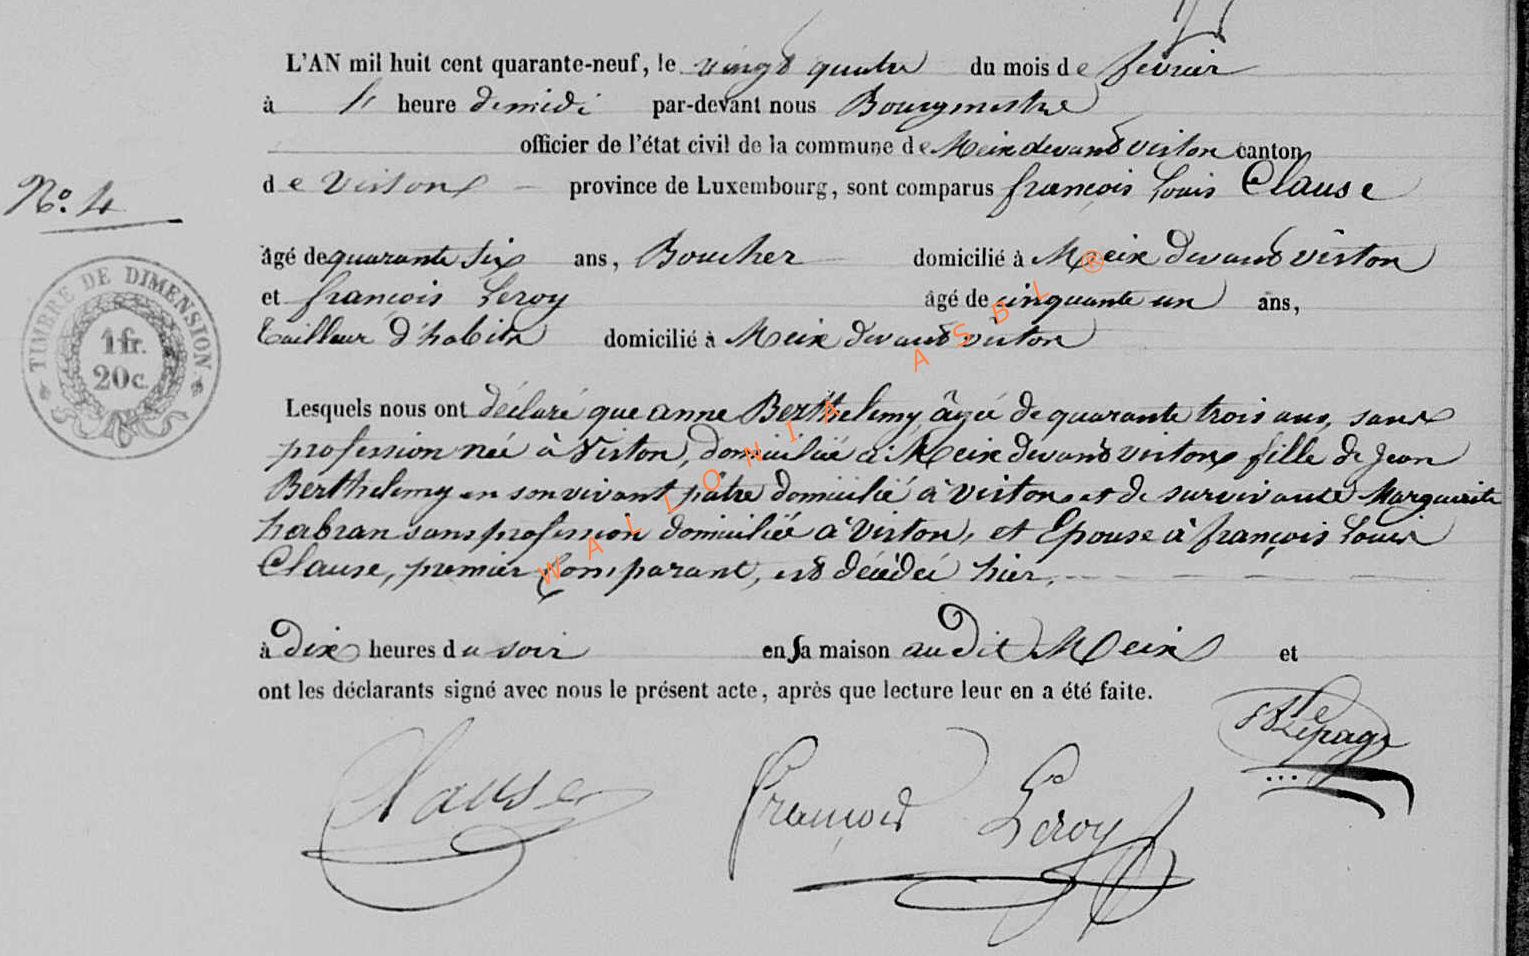 L'AN mil huit cent quarante-neuf, le vingt quatre du mois de fevrier
à heure demidi par-devant nous Bourgmestre
officier de l'état civil de la commune de Meix devant virton canton
de Virton province de Luxembourg, sont comparus françois Louis Clause
No. 4
âgé de quarante six ans, Boucher domicilié à Meix devant virton
et françois Leroy âgé de cinquante un ans,
tailleur d'habits domicilié à Meix devant virton
TIMBRE DE DIMENSION
1 fr.
20 c.
Lesquels nous ont déclaré que anne Berthelemy, âgée de quarante trois ans, sans
profession née à Virton, domiciliée à Meix devant virton, fille de Jean
Berthelemy en son vivant pâtre domicilié à virton, et de survivante Marguerite
habran sans profession domiciliée à Virton, et Epouse à françois Louis
Clause, premier Comparant, est décédée hier,
à dix heures du soir en sa maison audit Meix et
ont les déclarants signé avec nous le présent acte, après que lecture leur en a été faite.
Lepage
Clause François Leroy
WALLONIA ASBL ®